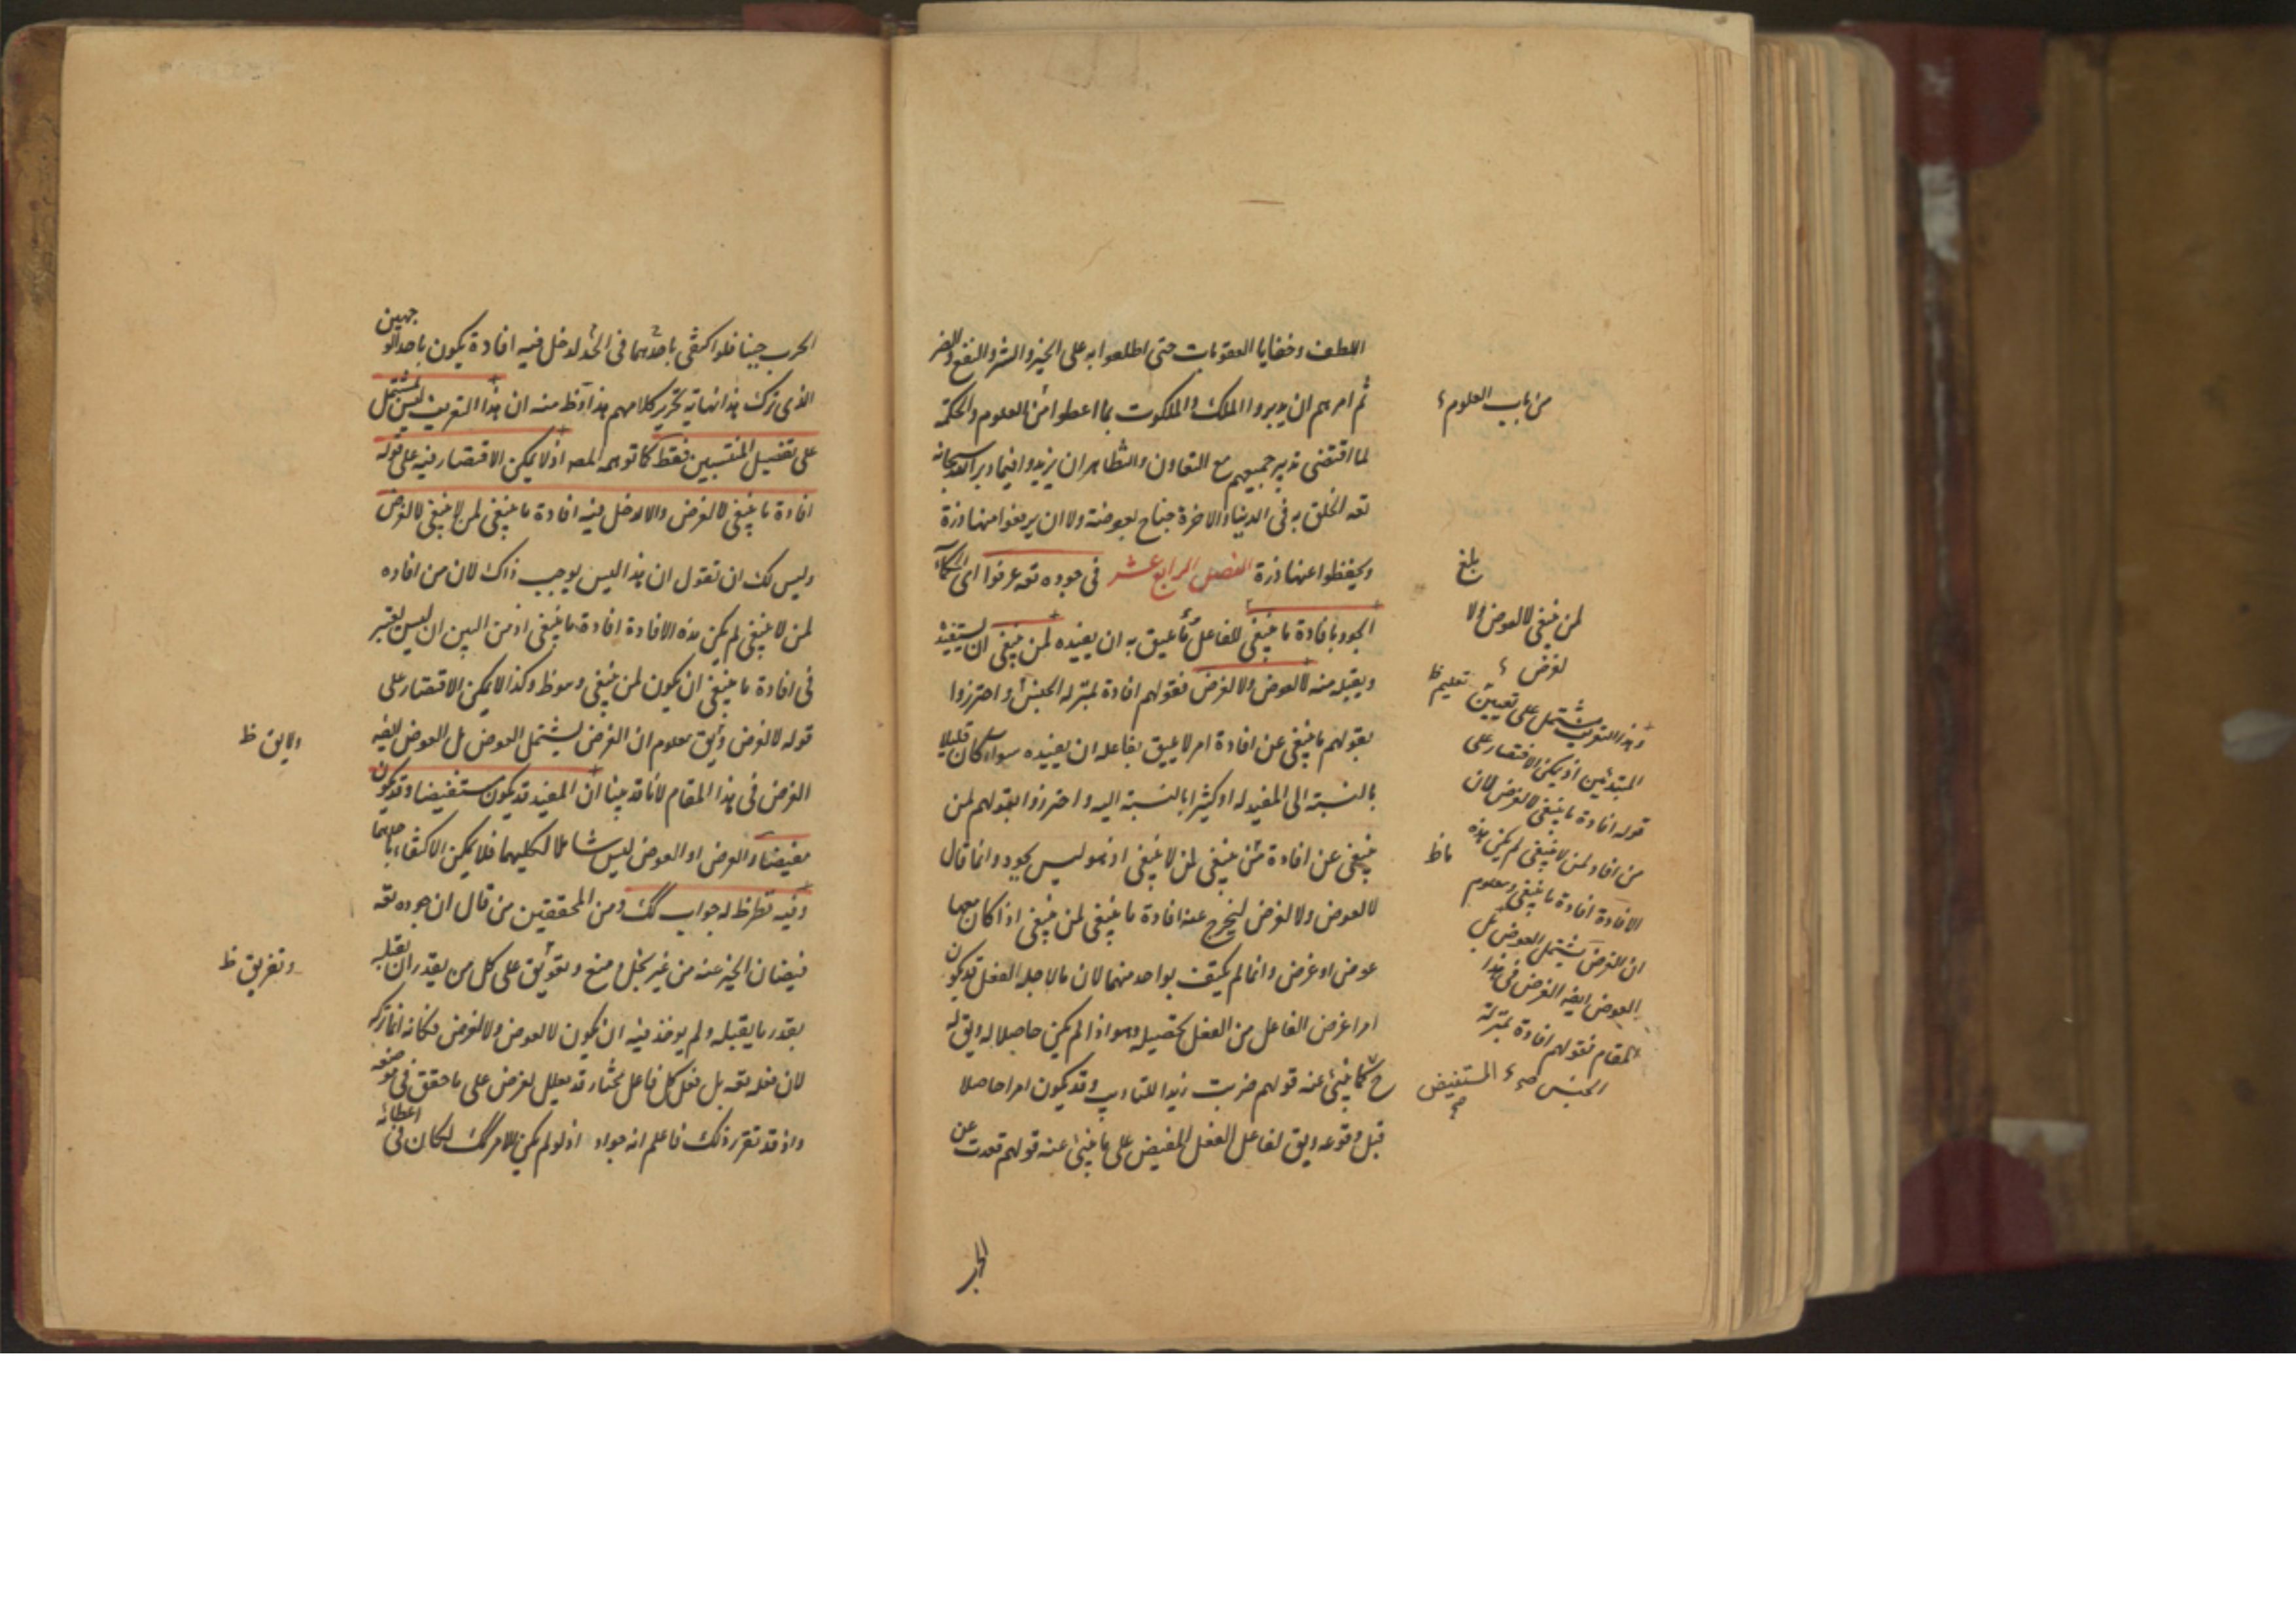 اللطف وخفايا العقوبات حتى اطلعوا به على الخير والشر والنفع والضر
ثم امرهم ان يدبروا الملك والملكوت بما اعطوا من العلوم والحكمة
لما اقتضى تدبير جميعهم مع التعاون والتظاهر ان يزيدوا فيما دبر الله سبحانه
تعه الخلق به فى الدنيا والاخرة جناح بعوضة ولا ان يرفعوا منها ذرة
ويخفظوا عنها ذرة الفصل الرابع عشر فى جوده تعه عرفوا اى الحكماء
الجود بافادة ما ينبغى للفاعل به ان يفيده لمن ينبغى ان يستفيد
ويقبله منه لا لعوض ولا لغرض فقولهم افادة بمنزلة الجنس واحترزوا
بقولهم ما ينبغى عن افادة امر لا يليق بفاعله ان يفيده سواء كان قليلا
بالنسبة الى المفيد له او كثيرا بالنسبة اليه واحترزوا بقولهم لمن
ينبغى عن افادة من ينبغى لمن لا ينبغى اذ هو ليس بجود وانما قال
لا لعوض ولا لغرض ليخرج عنه افادة ما ينبغى لمن ينبغى اذا كان معها
عوض او غرض وانما لم يكتف بواحد منهما لان ما لاجله الفعل قد يكون
امرا غرض الفاعل من الفعل تحصيله وهو اذا لم يكن حاصلا له ويق له
ح كما ينبئ عنه قولهم ضربت زيدا للتاديب وقد يكون امرا حاصلا
قبل وقوعه ويق لفاعل الفعل المفيض على ما ينبئ عنه قولهم قعدت عن
الحرب
من باب العلوم
بلغ
لمن ينبغى لا لعوض ولا
لغرض
تعليم ظ
وهذا التعريف يشتمل على تعيين
المبتدئين اذ يمكن الاقتصار على
قوله افادة ما ينبغى لا لغرض لان
من افاد لمن لا ينبغى لم يكن هذه
ما ظ
الافادة افادة ما ينبغى ومعلوم
ان الغرض يشتمل العوض بل
العوض ايضه الغرض فى هذا
المقام فقولهم افادة بمنزلة
الجنس صح المستفيض
الحرب جبنا فلو اكتفى باحدهما فى الحد لدخل فيه افادة يكون باحد الوجهين
الذى ترك هذا نهاية تحرير كلامهم هذا وظ منه ان هذا التعريف ليس يشتمل
على تفصيل المنتسبين فقط كما توهمه المصه اذ لا يمكن الاقتصار فيه على قوله
افادة ما ينبغى لا لغرض والا لدخل فيه افادة ما ينبغى لمن لا ينبغى لا لغرض
وليس لك ان تقول ان هذا ليس يوجب ذاك لان من افاده
لمن لا ينبغى لم يكن هذه الافادة افادة ما ينبغى اذ من البين ان ليس يعتبر
فى افادة ما ينبغى ان يكون لمن ينبغى وهو ظ وكذا لا يمكن الاقتصار على
قوله لا لغرض ويق معلوم ان الغرض يشتمل العوض بل العوض ايضه
الغرض فى هذا المقام لانا قد بينا ان المفيد قد يكون مستفيضا وقد يكون
مفيضا والغرض او العوض ليس شاملا لكليهما فلا يمكن الاكتفاء باحدهما
وفيه نظر ظ له جواب كك ومن المحققين من قال ان جوده تعه
فيضان الخير عنه من غير بخل ومنع وتعويق على كل من يقدر ان يقبله
بقدر ما يقبله ولم يوخذ فيه ان يكون لا لعوض ولا لغرض فكانه انما تركه
لان فعله تعه بل فعل كل فاعل مختار قد يعلل بغرض على ما حقق فى موضعه
واذ قد تقرر ذلك فاعلم انه جواد اذ لو لم يكن الامر كك لكان فى اعطائه
ولا يق ظ
وتفريق ظ